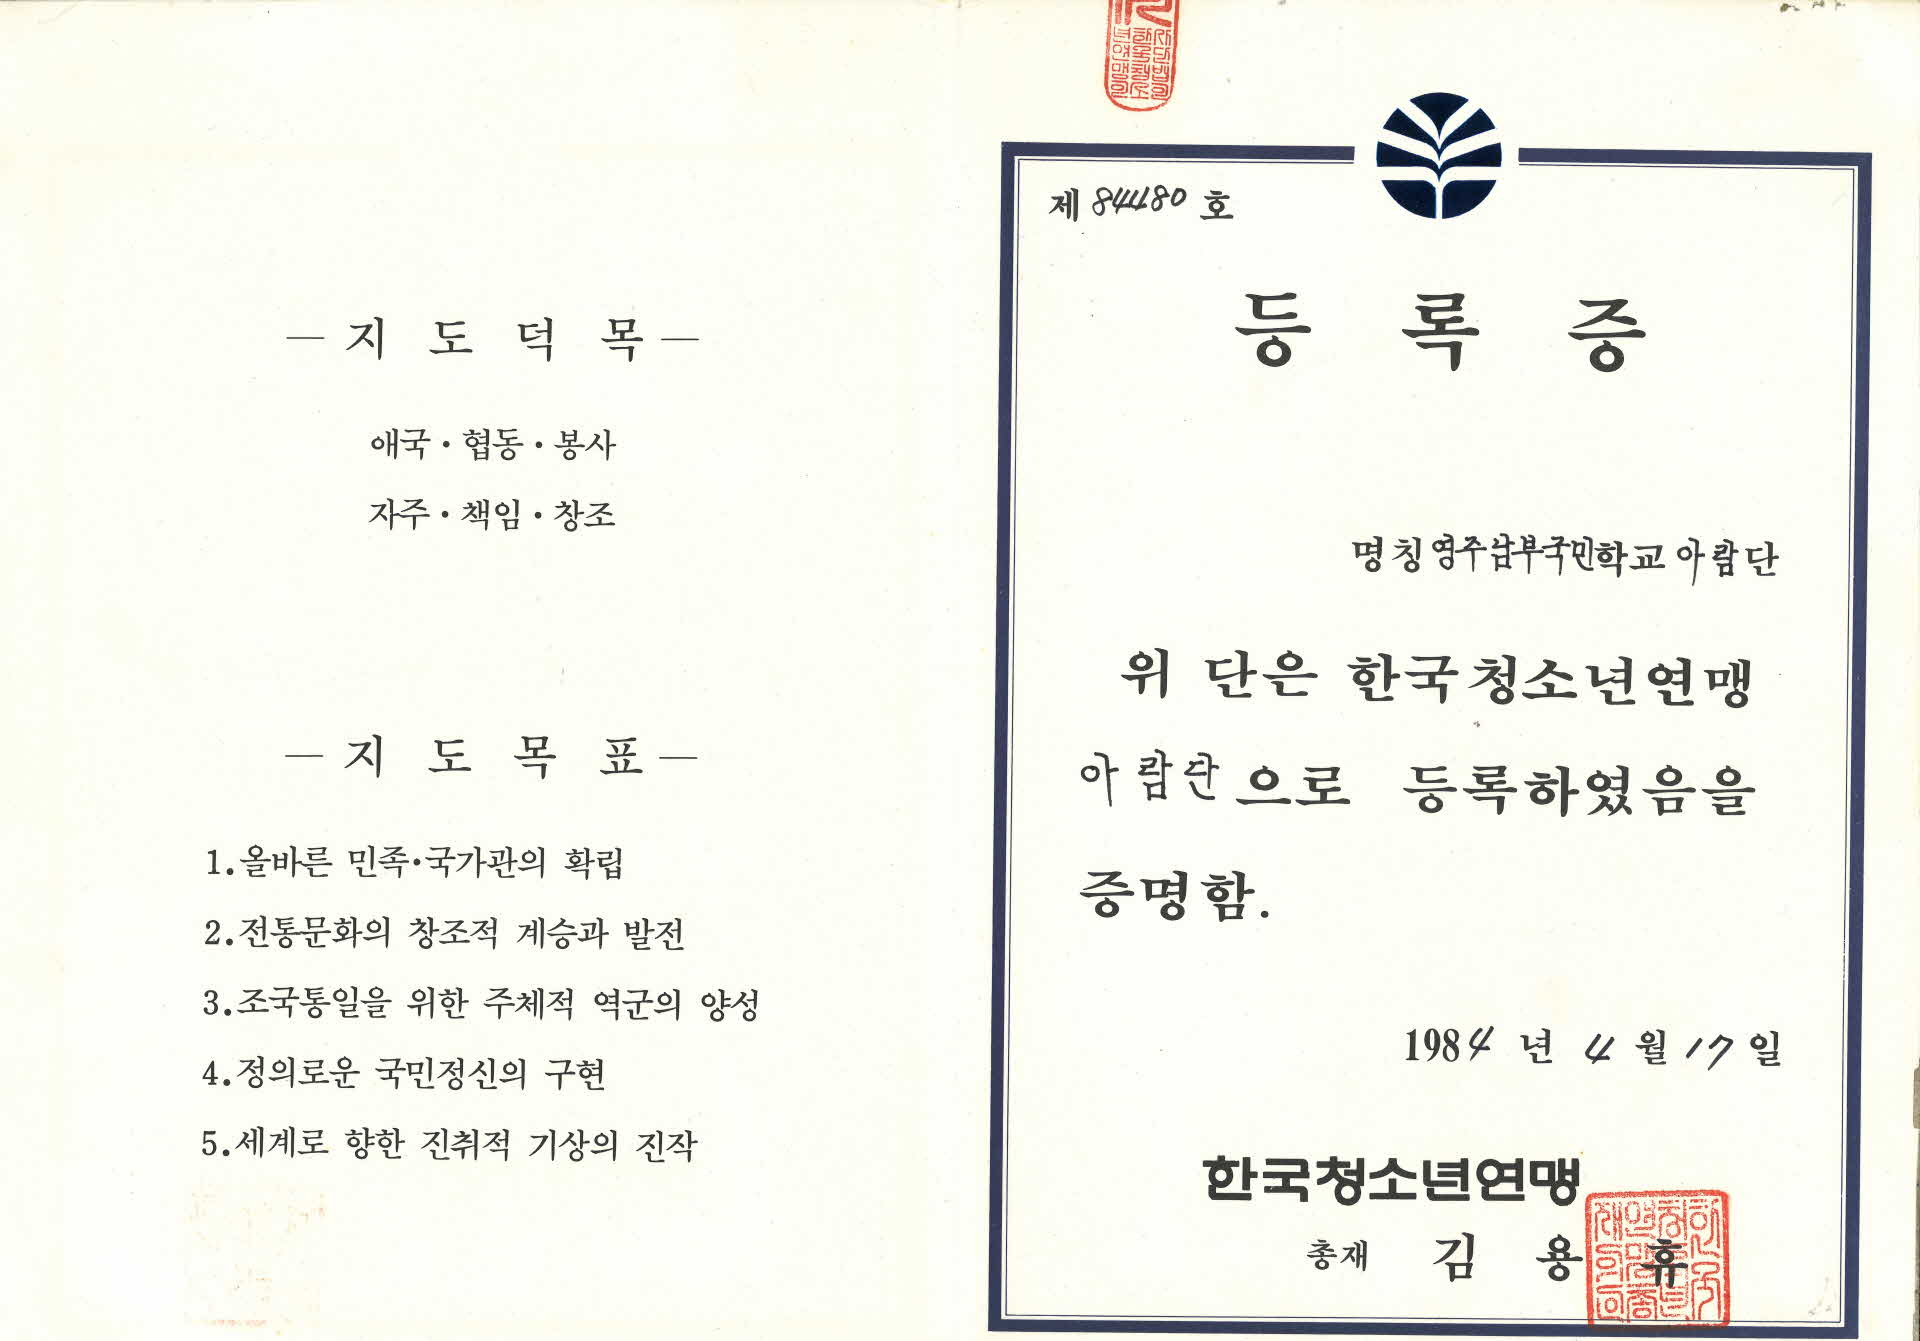 — 지 도 덕 목 —
애국 · 협동 · 봉사
자주 · 책임 · 창조
— 지 도 목 표 —
1. 올바른 민족·국가관의 확립
2. 전통문화의 창조적 계승과 발전
3. 조국통일을 위한 주체적 역군의 양성
4. 정의로운 국민정신의 구현
5. 세계로 향한 진취적 기상의 진작
제 84480 호
등 록 증
명칭 영주남부국민학교 아람단
위 단은 한국청소년연맹
아람단으로 등록하였음을
증명함.
1984 년 4 월 17 일
한국청소년연맹
총재 김 용 휴